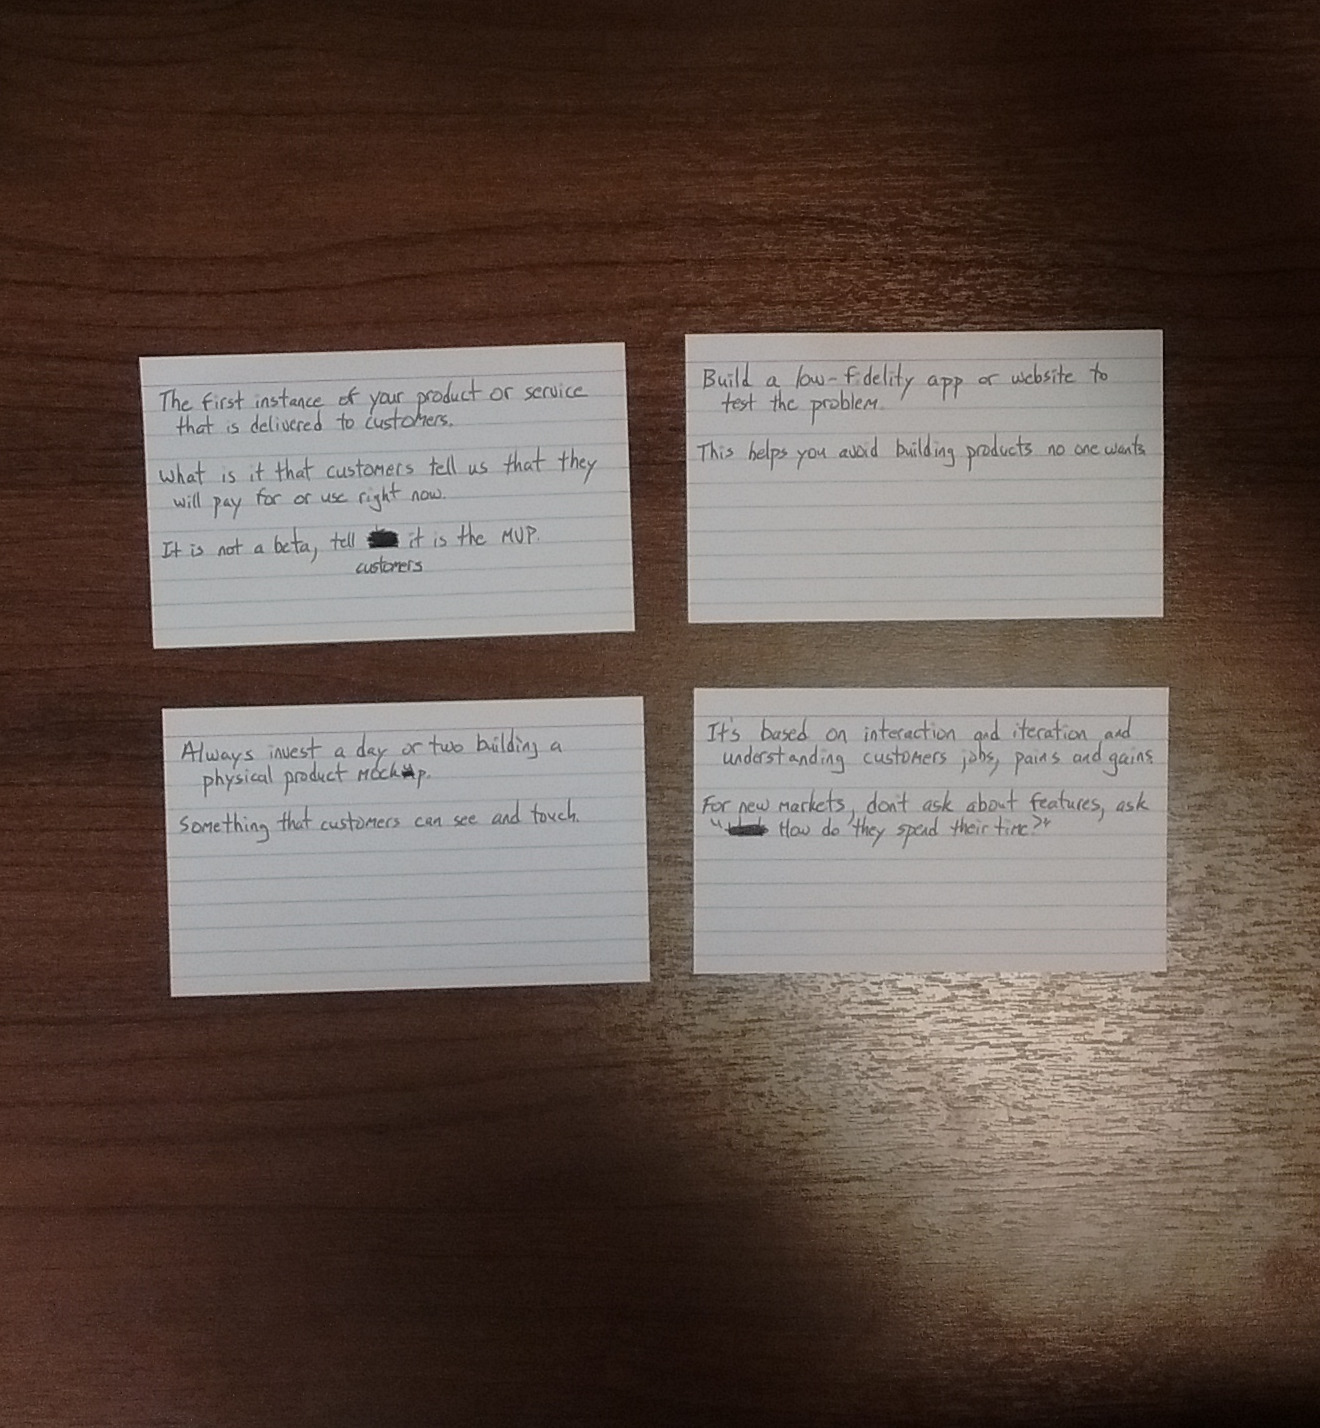 The first instance of your product or service
that is delivered to customers.
What is it that customers tell us that they
will pay for or use right now.
It is not a beta, tell it is the MVP.
customers
Build a low-fidelity app or website to
test the problem.
This helps you avoid building products no one wants
Always invest a day or two building a
physical product mockup.
Something that customers can see and touch.
It's based on interaction and iteration and
understanding customers jobs, pains and gains
For new markets, don't ask about features, ask
"How do they spend their time?"